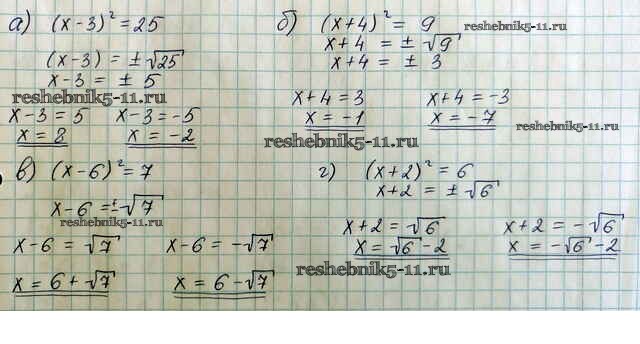 а) (x-3)² = 25
(x-3) = ±√25
x-3 = ± 5
reshebnik5-11.ru
x-3 = 5 x-3 = -5
x = 8 x = -2
б) (x+4)² = 9 reshebnik5-11.ru
x+4 = ± √9
x+4 = ± 3
x+4 = 3 x+4 = -3
x = -1 x = -7 reshebnik5-11.ru
reshebnik5-11.ru
в) (x-6)² = 7
x-6 = ±√7
reshebnik5-11.ru
x-6 = √7 x-6 = -√7
x = 6+√7 x = 6-√7
г) (x+2)² = 6
x+2 = ±√6
x+2 = √6 x+2 = -√6
x = √6-2 x = -√6-2
reshebnik5-11.ru